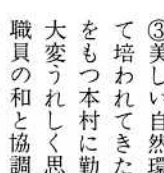 ③美しい自然環
て培われてきた
をもつ本村に勤
大変うれしく思
職員の和と協調